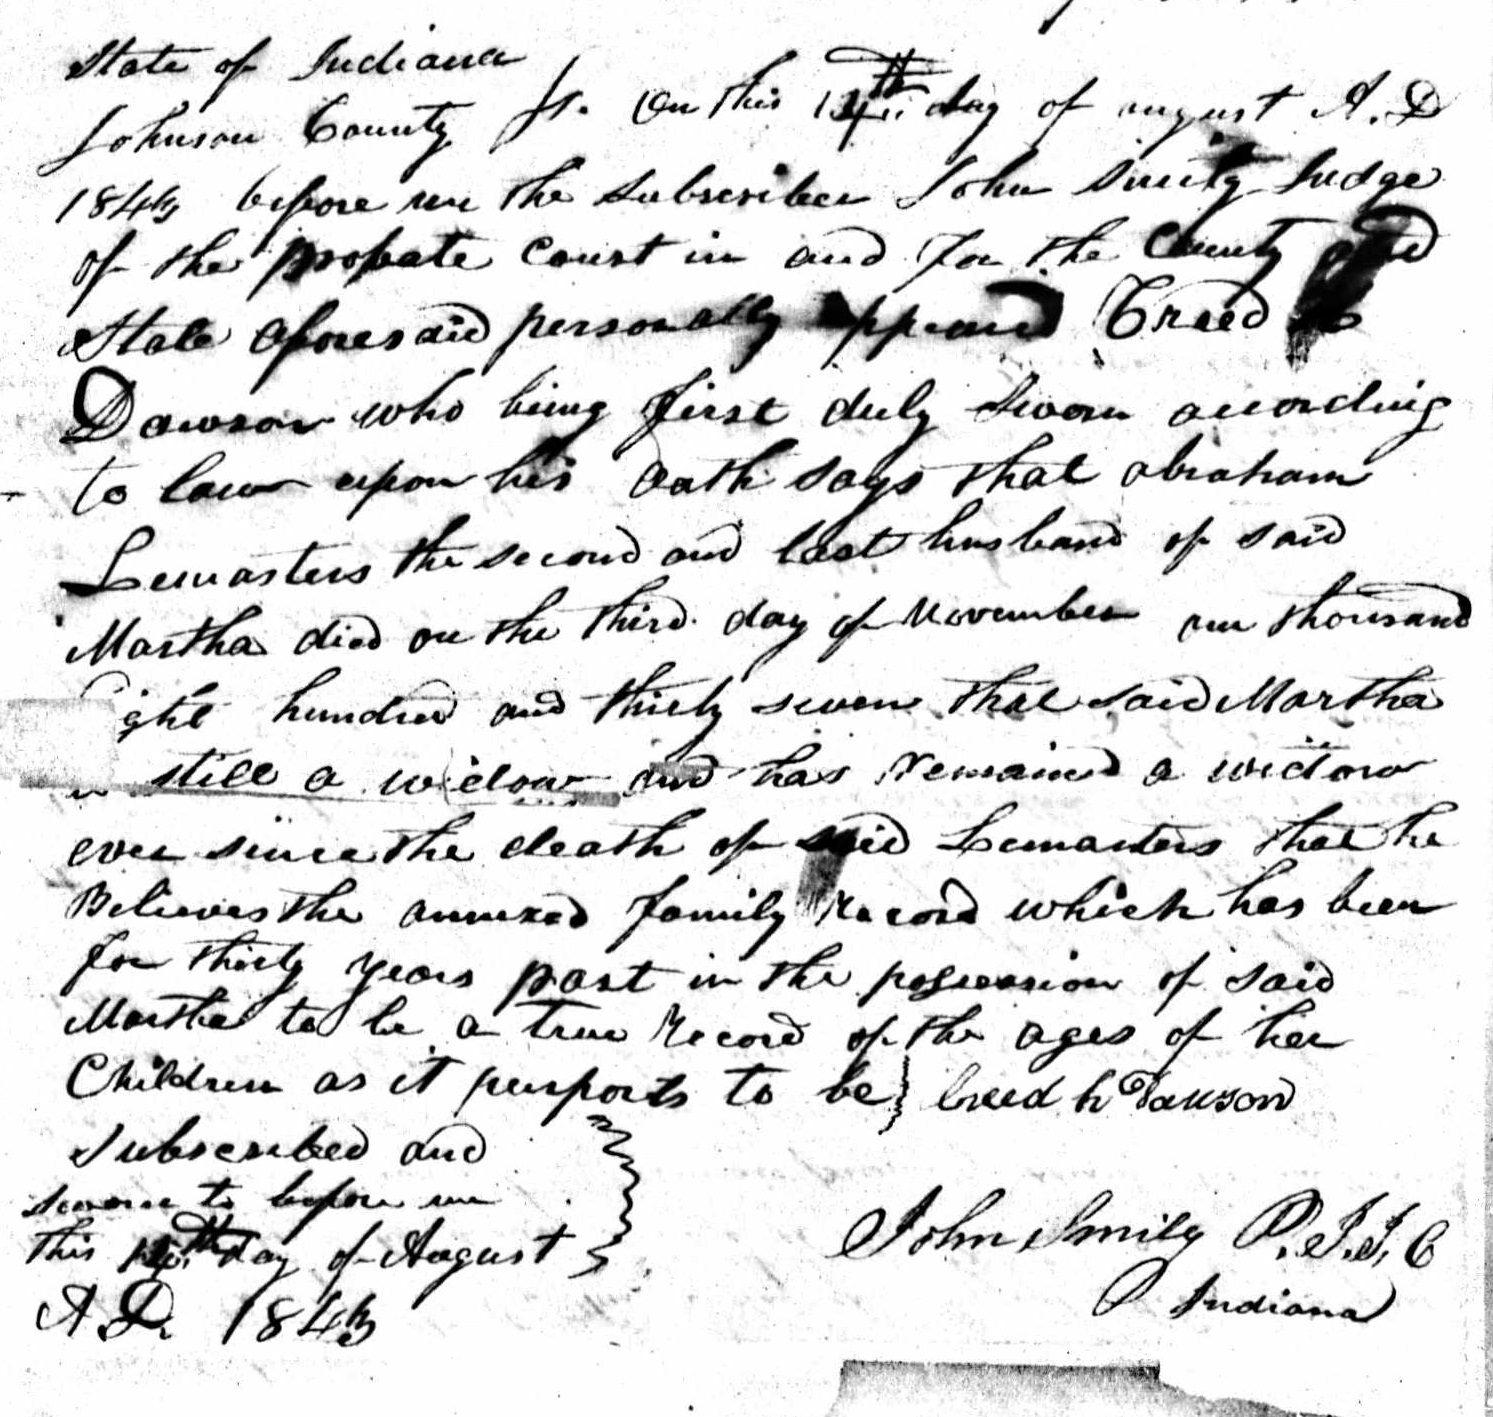 State of Indiana
Johnson County Ss. On this 14th day of august A. D
1843 before me the subscriber John Smily Judge
of the probate Court in and for the County and
State aforesaid personally appeared Creed
Dawson who being first duly sworn according
to law upon his Oath says that abraham
Lemasters the second and last husband of said
Martha died on the third day of November one thousand
Eight hundred and thirty seven that said Martha
is still a widow and has remained a widow
ever since the death of said Lemasters that he
Believes the annexed family Record which has been
for thirty years past in the possession of said
Martha to be a true Record of the ages of her
Children as it purports to be Creed h Dawson
Subscribed and
sworn to before me
this 14th day of August
A. D. 1843
John Smily P. J. J. C
Indiana